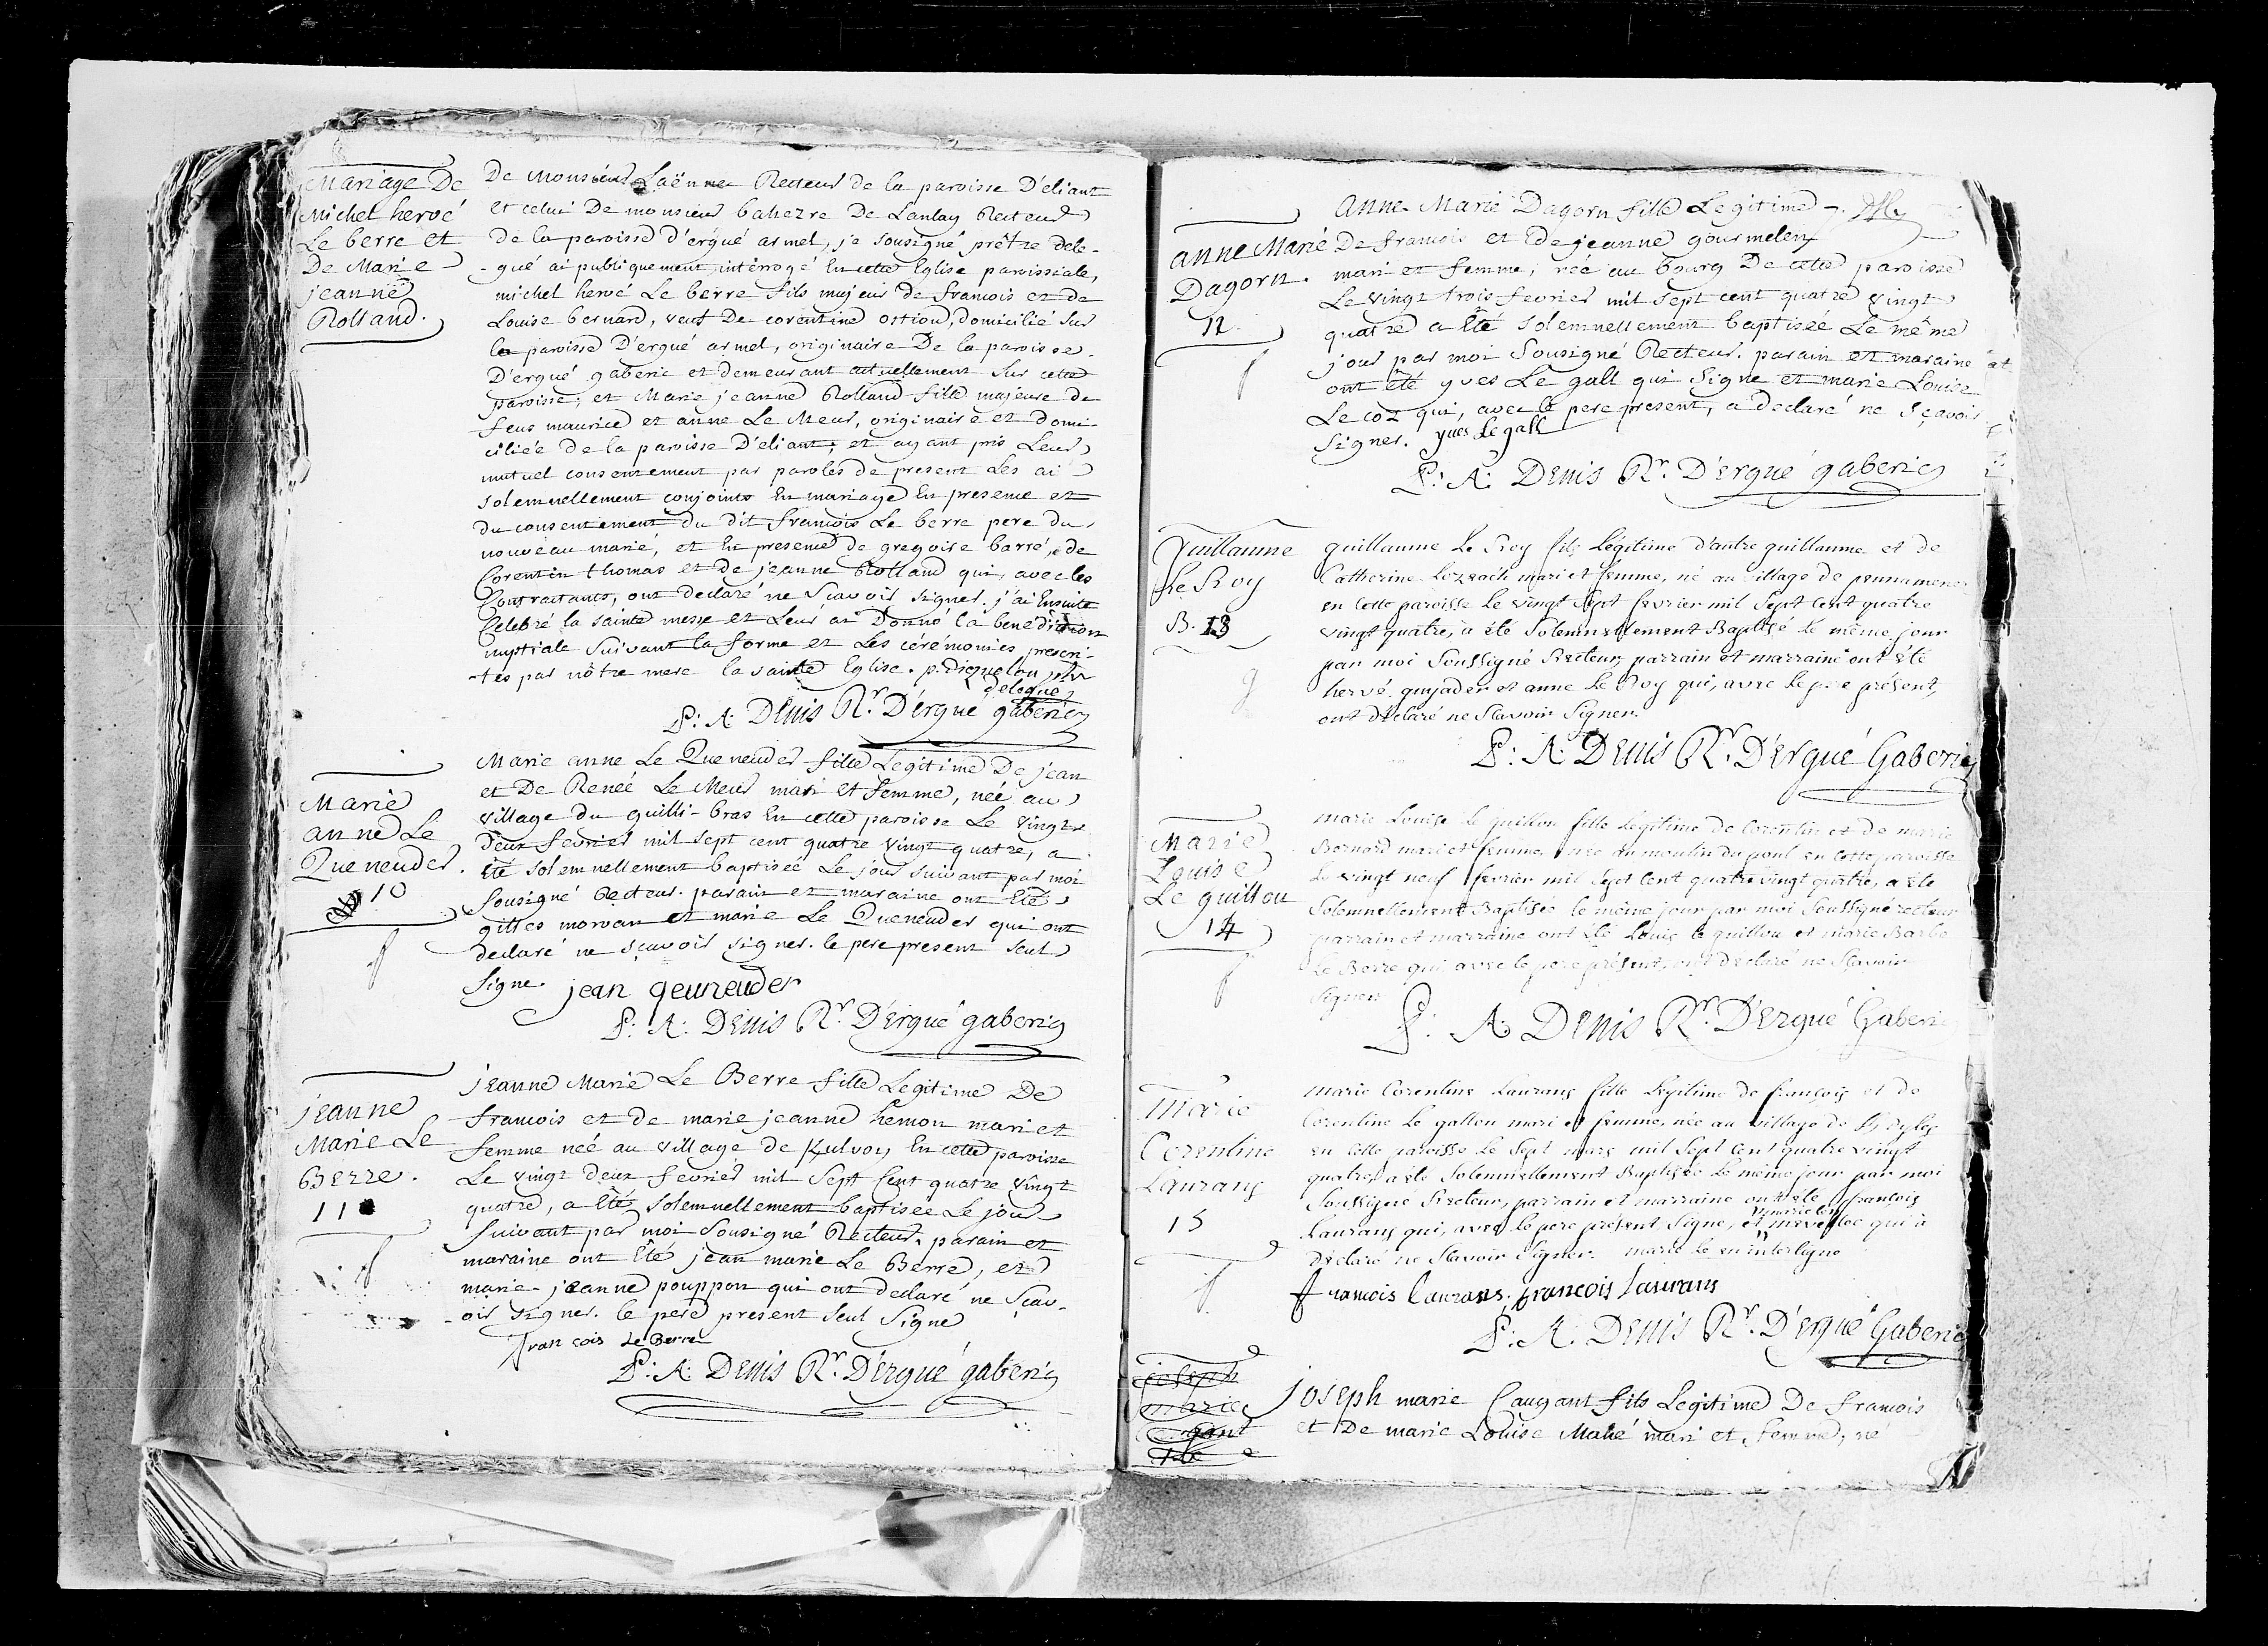 Mariage De
Michel hervé
Le berre et
De Marie
jeanne
Rolland.
De Monsieur Laënnec Recteur de la paroisse D'eliant
et celui De monsieur bahezre De Lanlay Recteur
de la paroisse d'ergué armel, je sousigné prêtre dele-
-gué ai publiquement intérrogé En cette Eglise paroissiale,
michel hervé Le berre fils majeur de francois et de
Louise bernard, veuf De corentine ostiou, domicilié sur
la paroisse D'ergué armel, originaire De la paroisse
D'ergué gaberic et demeurant actuellement sur cette
paroisse; et Marie jeanne Rolland fille majeure de
feus maurice et anne Le Meur, originaire et domi-
ciliée de la paroisse D'eliant; et ayant pris Leur
mutuel consentement par paroles de present Les ai
solemnellement conjoints En mariage En presence et
du consentement du dit francois Le berre pere du
nouveau marié, et En presence de gregoire barré, de
Corentin thomas et de jeanne Rolland qui, avec les
Contractants, ont declaré ne scavoir signer. j'ai Ensuite
Celebré la sainte messe et Leur ai Donné la benediction
nuptiale suivant la forme et Les cérémonies prescri-
-tes par nôtre mere la sainte Eglise.
delegué
P: A: Denis Rr. D'ergué gaberic
Marie
anne Le
Queneuder.
10
Marie anne Le Queneuder fille Legitime De jean
et De Renée Le Meur mari et femme, née au
village du quilli-bras En cette paroisse Le vingt
Deux fevrier mil sept cent quatre vingt quatre, a
été solemnellement baptisée Le jour suivant par moi
sousigné Recteur. parain et maraine ont Eté
gilles morvan et marie Le Queneuder qui ont
declaré ne sçavoir signer. le pere present seul
signe. jean qeuneuder
P: A: Denis Rr. D'Ergué gaberic
jeanne
Marie Le
Berre.
11
jeanne Marie Le Berre fille Legitime De
francois et de marie jeanne hemon mari et
femme née au village de Kulvoy En cette paroisse
Le vingt deux fevrier mil sept cent quatre vingt
quatre, a Eté solemnellement baptisée Le jour
suivant par moi sousigné Recteur. parain et
maraine ont Eté jean marie Le Berre, et
marie-jeanne pouppon qui ont declaré ne scav-
-oir signer. le pere present seul signe
fran cois Le Berre
P: A: Denis Rr. D'Ergué gaberic
anne Marie
Dagorn.
12
Anne Marie Dagorn fille Legitime
De francois et de jeanne gourmelen
mari et femme, née au bourg De cette paroisse
Le vingt trois fevrier mil sept cent quatre vingt
quatre a Eté solemnellement baptisée Le même
jour par moi sousigné Recteur. parain et maraine
ont été yves Le gall qui signe et marie Louise
Le coz qui, avec le pere present, a declaré ne sçavoir
signer. yves Le gall
P: A: Denis Rr. D'Ergué gaberic
Guillaume
Le Roy
B. 13
guillaume Le Roy fils Légitime d'autre guillaume et de
Catherine Lozeach mari et femme, né au village de
en cette paroisse Le vingt sept fevrier mil sept cent quatre
vingt quatre, a été solemnellement Baptisé le même jour
par moi soussigné Recteur, parrain et marraine ont été
hervé guyader et anne Le Roy qui, avec le pere présent,
ont déclaré ne scavoir signer.
P: A: Denis Rr. D'Ergué Gaberic
Marie
Louise
Le guillou
14
marie Louise Le guillou fille Légitime de Corentin et de marie
Bernard mari et femme, née au moulin du pont en cette paroisse
Le vingt neuf fevrier mil sept cent quatre vingt quatre, a été
solemnellement Baptisée le même jour par moi soussigné recteur
parrain et marraine ont été Louis le guillou et marie Barbe
Le Berre qui avec le pere présent, ont declaré ne scavoir
signer
P: A: Denis Rr. D'Ergué Gaberic
Marie
Corentine
Laurans
15
marie Corentine Laurans fille Légitime de françois et de
Corentine Le gallou mari et femme, née au village de
en cette paroisse le sept mars mil sept cent quatre vingt
quatre, a été solemnellement Baptisée le même jour par moi
soussigné Recteur, parrain et marraine ont été françois
Laurans qui, avec le pere présent signe, et qui a
déclaré ne scavoir signer. marie le en interligne
francois Laurans. francois Laurans
P: A: Denis Rr. D'Ergué Gaberic
joseph
marie
joseph marie Caugant fils Legitime De francois
et De marie Louise Mahé mari et femme, né